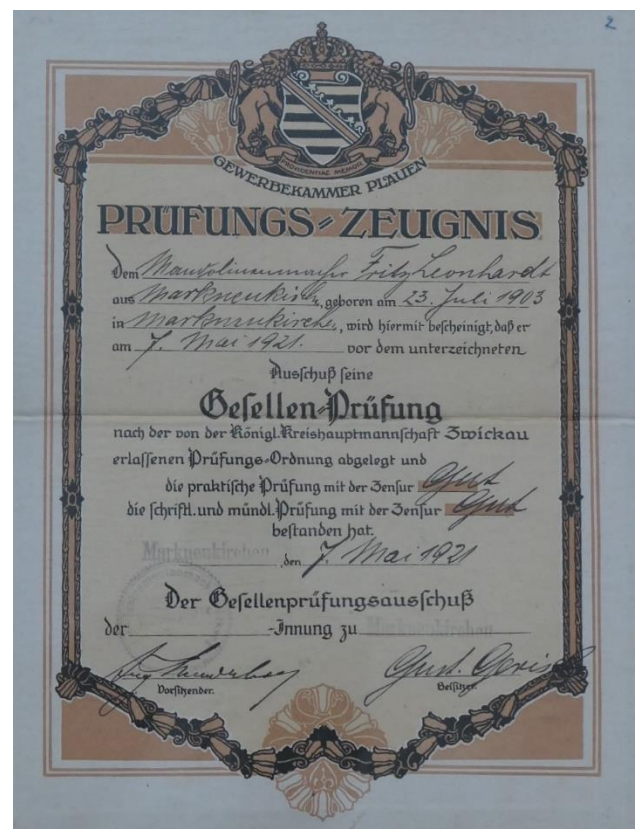 2
PROVIDENTIAE MEMOR
GEWERBEKAMMER PLAUEN
PRÜFUNGS-ZEUGNIS
Dem Mandolinenmacher Fritz Leonhardt
aus Markneukirch., geboren am 23. Juli 1903
in Markneukirchen, wird hiermit bescheinigt, daß er
am 7. Mai 1921. vor dem unterzeichneten
Ausschuß seine
Gesellen-Prüfung
nach der von der Königl. Kreishauptmannschaft Zwickau
erlassenen Prüfungs-Ordnung abgelegt und
die praktische Prüfung mit der Zensur Gut
die schriftl. und mündl. Prüfung mit der Zensur Gut
bestanden hat.
Markneukirchen, den 7. Mai 1921
Der Gesellenprüfungsausschuß
der -Innung zu Markneukirchen
Gust.
Vorsitzender. Beisitzer.